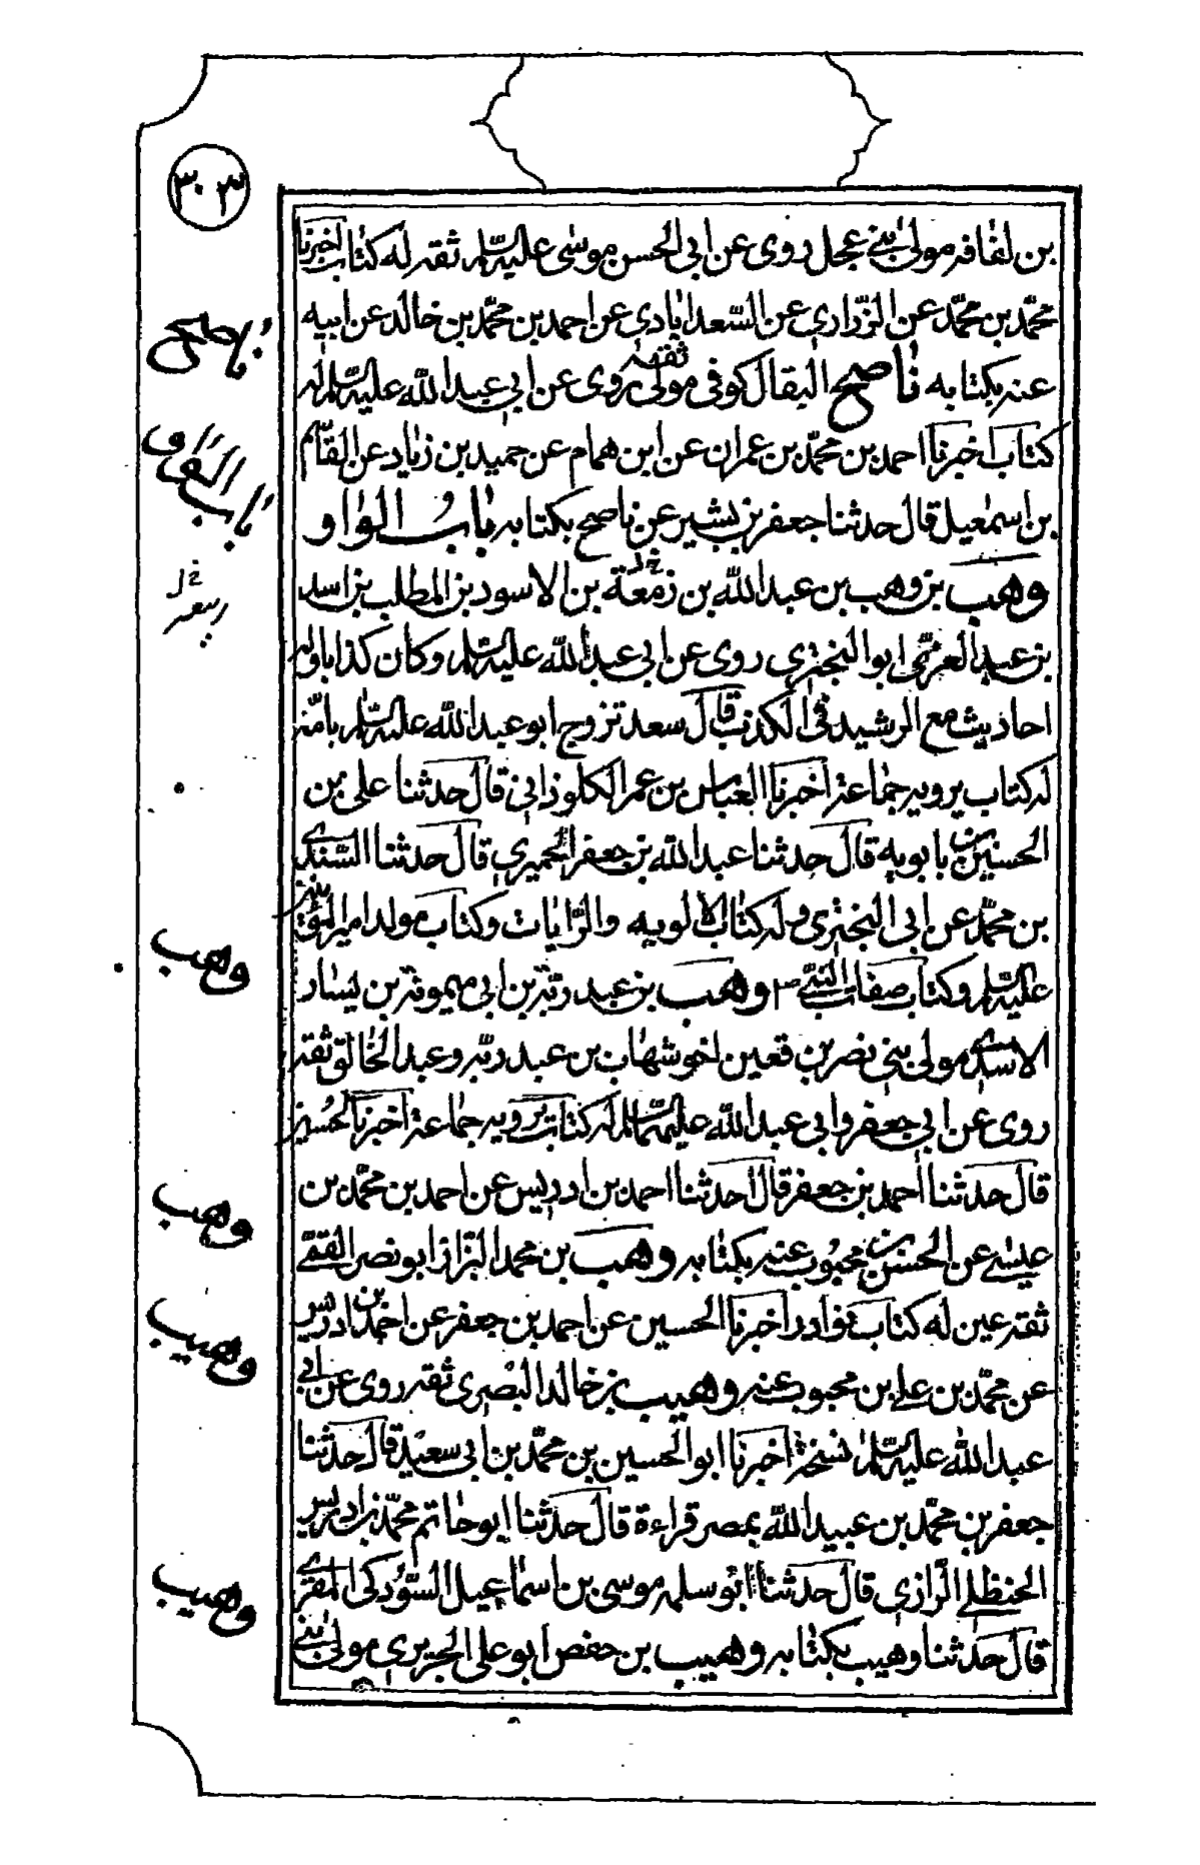 ٣٠٣
بن لفافه مولى بني عجل روى عن ابي الحسن موسى عليه السلم ثقه له كتاب اخبرنا
محمد بن محمد عن الزراري عن السعدابادي عن احمد بن محمد بن خالد عن ابيه
عنه بكتابه ناصح البقال كوفى مولى ثقة روى عن ابي عبد الله عليه السلم له
كتاب اخبرنا احمد بن محمد بن عمران عن ابن همام عن حميد بن زياد عن القاسم
بن اسمعيل قال حدثنا جعفر بن بشير عن ناصح بكتابه باب الواو
وهب بن وهب بن عبد الله بن زمعة بن الاسود بن المطلب بن اسد
بن عبد العزى ابو البختري روى عن ابي عبد الله عليه السلم وكان كذابا وله
احاديث مع الرشيد في الكذب قال سعد تزوج ابو عبد الله عليه السلم بامه
له كتاب يرويه جماعة اخبرنا العباس بن عمر الكلوذاني قال حدثنا علي بن
الحسين بن بابويه قال حدثنا عبد الله بن جعفر الحميري قال حدثنا السندي
بن محمد عن ابي البختري وله كتاب الالويه والرايات وكتاب مولد امير المؤمنين
عليه السلم وكتاب صفات النبي ص وهب بن عبد ربه بن ابي ميمونة بن يسار
الاسدي مولى بني نصر بن قعين اخو شهاب بن عبد ربه وعبد الخالق ثقه
روى عن ابي جعفر وابي عبد الله عليهما السلم له كتاب يرويه جماعة اخبرنا الحسين
قال حدثنا احمد بن جعفر قال حدثنا احمد بن ادريس عن احمد بن محمد بن
عيسى عن الحسن بن محبوب عنه بكتابه وهب بن محمد البزاز ابو نصر القمي
ثقه عين له كتاب نوادر اخبرنا الحسين عن احمد بن جعفر عن احمد بن ادريس
عن محمد بن علي بن محبوب عنه وهيب بن خالد البصري ثقه روى عن ابي
عبد الله عليه السلم نسخة اخبرنا ابو الحسين بن محمد بن ابي سعيد قال حدثنا
جعفر بن محمد بن عبيد الله بمصر قراءة قال حدثنا ابو حاتم محمد بن ادريس
الحنظلي الرازي قال حدثنا ابو سلمه موسى بن اسماعيل السؤدكي المقري
قال حدثنا وهيب بكتابه وهيب بن حفص ابو علي الجريري مولى بني
ناصح
باب الواو
وهب
وهب
وهيب
وهيب